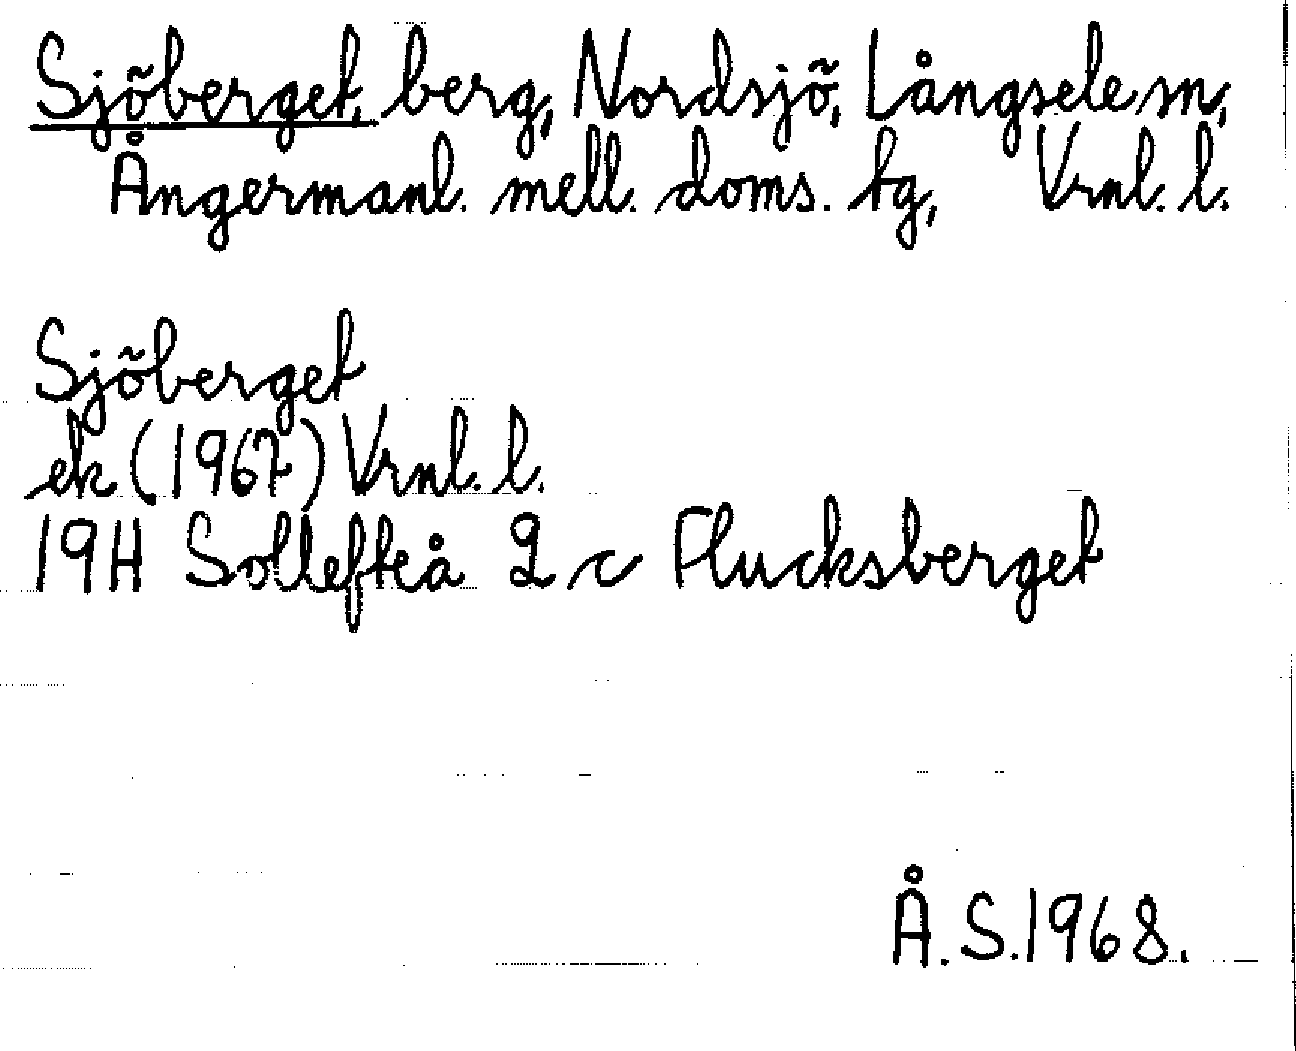 Sjöberget, berg, Nordsjö, Långsele sn,
Ångermanl. mell. doms. tg, Vrnl. l.
Sjöberget
ek (1967) Vrnl. l.
19H Sollefteå 2 c Flucksberget
Å.S. 1968.